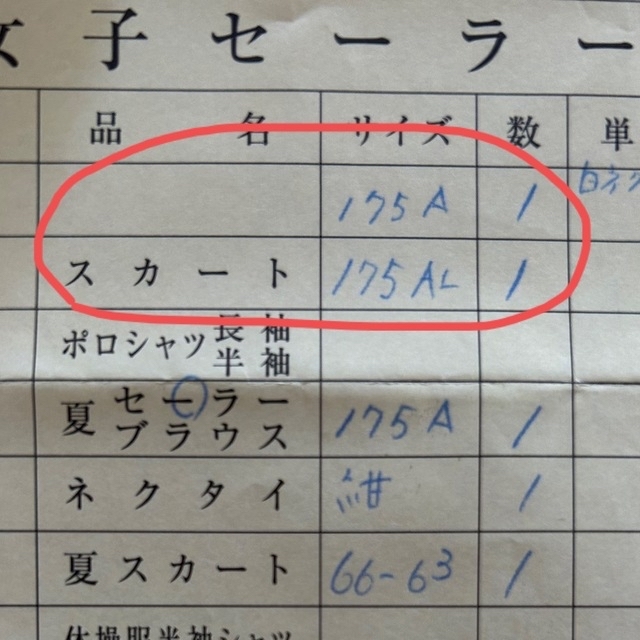 女子セーラー
品名 サイズ 数 単
175A 1 白ネク
スカート 175AL 1
ポロシャツ長袖半袖
夏セーラーブラウス 175A 1
ネクタイ 紺 1
夏スカート 66-63 1
体操服半袖シャツ